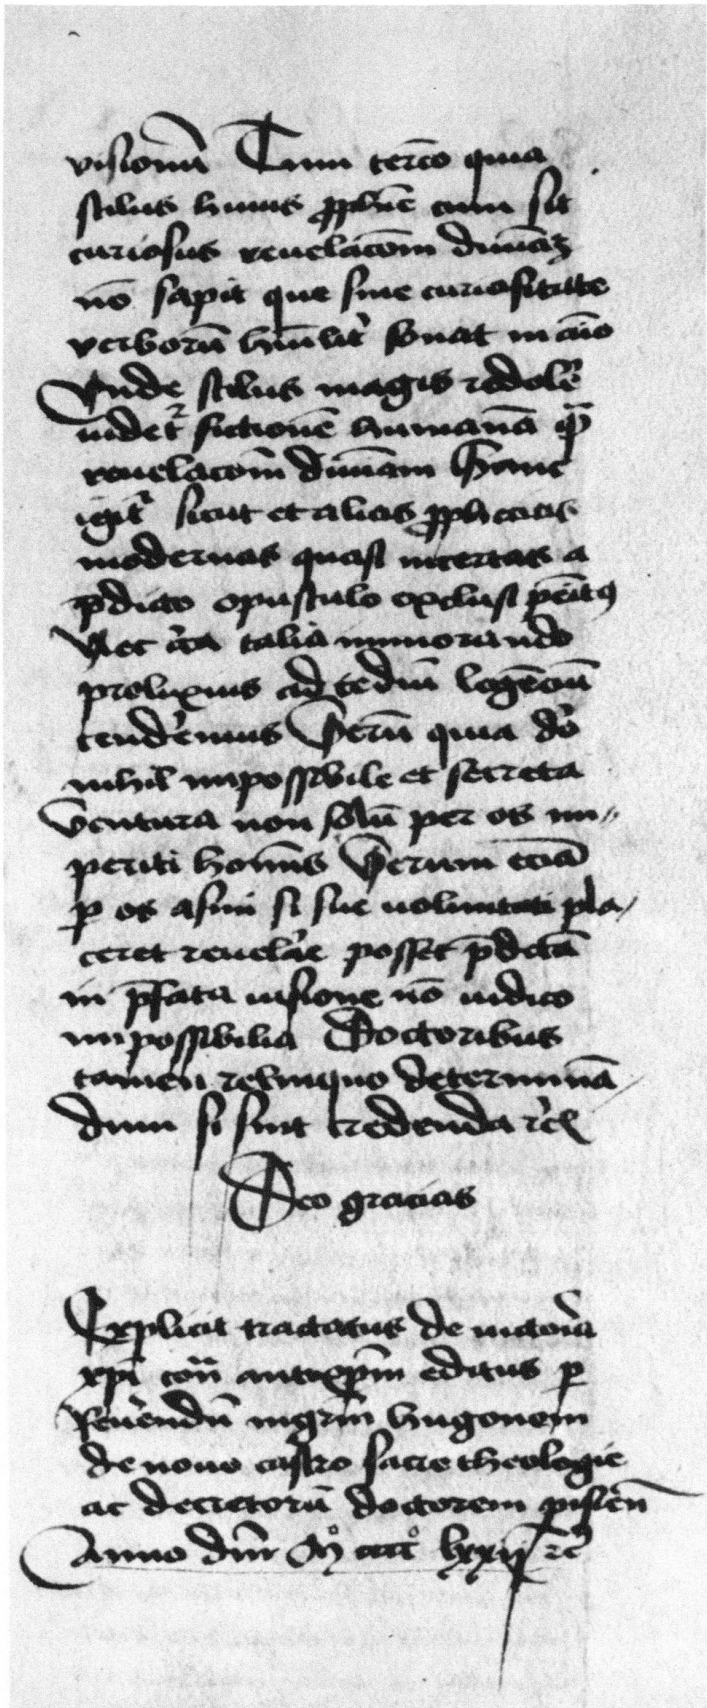 visionū Tum terc̄o quia
stilus huius ꝓphīe cum sit
curiosus reuelac̄om diuinaꝫ
nō sapit que sine curiositate
verborū hūilit̉ sonat in aīo
Vnde stilus magis redolē
uidet᷑ fictionē humanā qͣ̄
reuelac̄om diuinam Hanc
igit᷑ sicut et alias ꝓphecias
modernas quasi incertas a
p̄dicto opusculo exclusi pēitꝰ
Nec c̄ca talia immorando
prolixius ad tediū legēciū
tend̉emus Verū quia d̄o
nihil impossibile et secreta
ventura non solū per os im〃
periti homīs Verum eciā
ꝑ os asini si sue voluntati pla/
ceret reuelar̉e posset p̄dictā
in p̄fata uisione nō iudico
impossibilia Doctoribus
tamen relinquo determinā/
dum si sint credenda rc̄
Deo gracias
Explicit tractatus de uictoria
xp̄i cont̄ antixp̄m editus ꝑ
Reủendū mgr̄m hugonem
de nouo castro sacre theologie
ac decretorū doctorem pisieñ
Anno dn̄i Mͦ ccccͦ lxxij rc̄